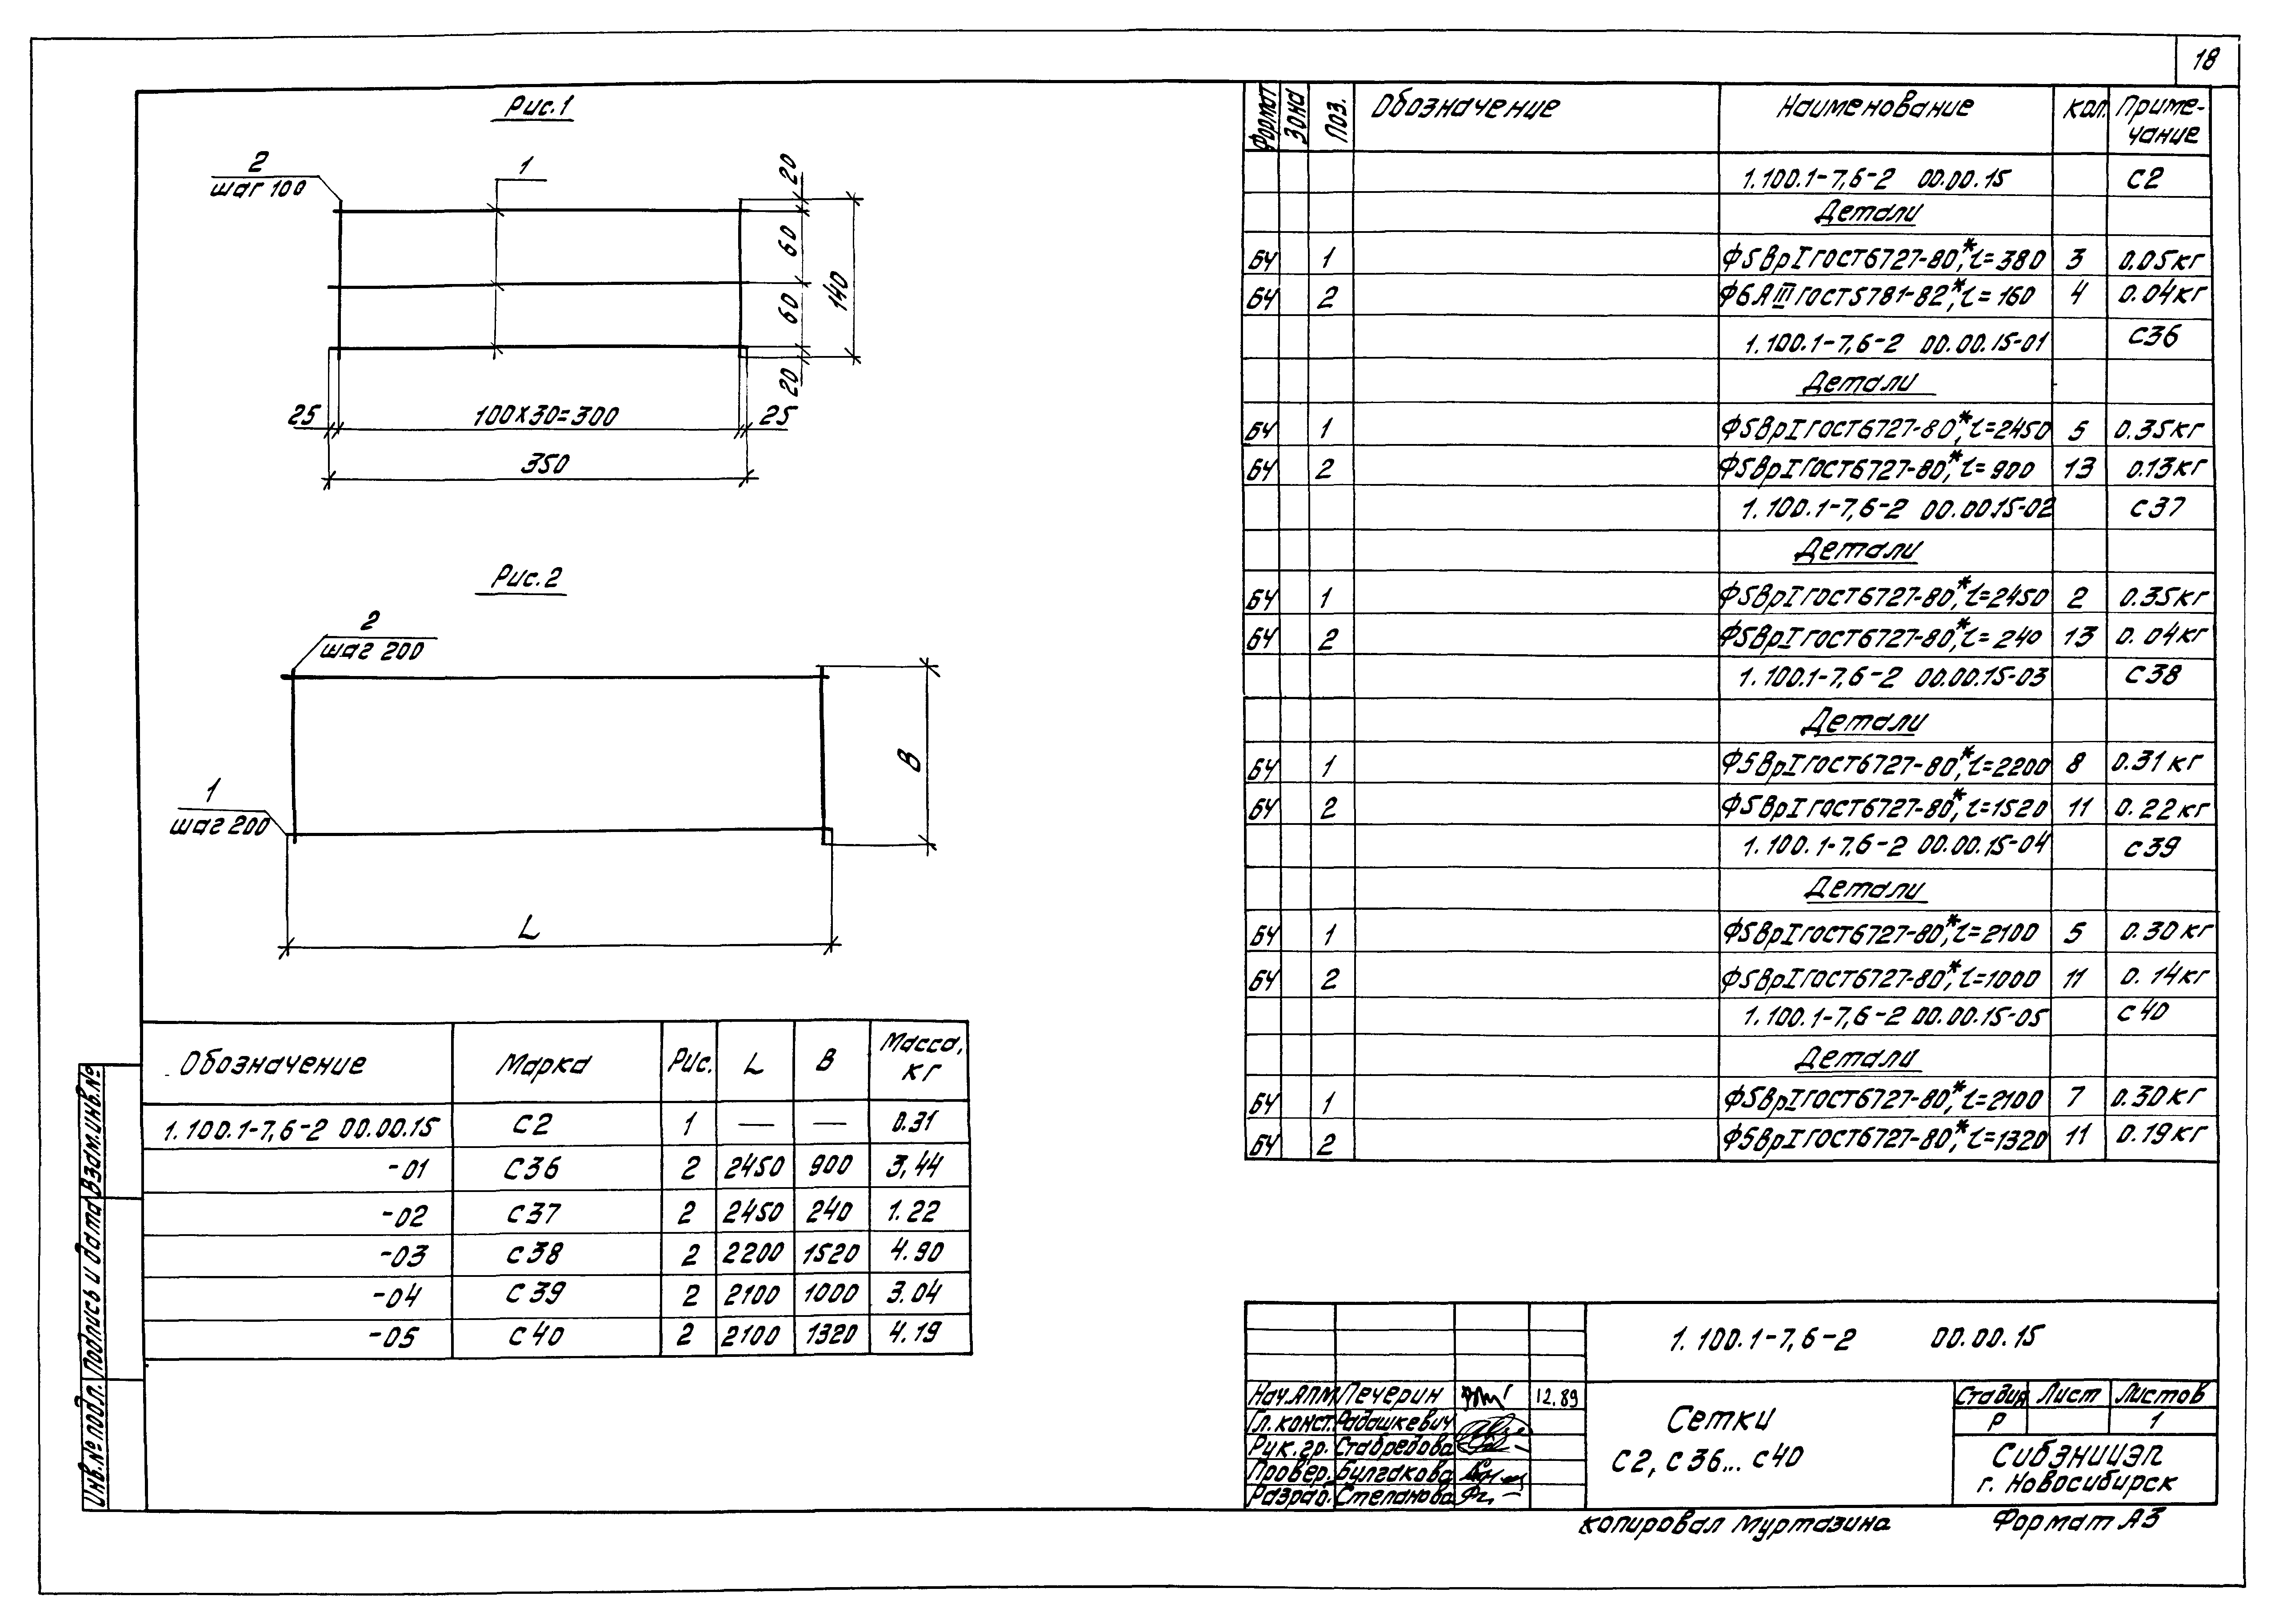 18
Рис.1
2
шаг 100
1
20
60
60
20
140
25
100х30=300
25
350
Рис.2
2
шаг 200
1
шаг 200
B
L
Обозначение Марка Рис. L B Масса, кг
1.100.1-7,6-2 00.00.15 С2 1 — — 0.31
-01 С36 2 2450 900 3,44
-02 С37 2 2450 240 1.22
-03 С38 2 2200 1520 4.90
-04 С39 2 2100 1000 3.04
-05 С40 2 2100 1320 4.19
Формат Зона Поз. Обозначение Наименование Кол. Приме-
чание
1.100.1-7,6-2 00.00.15 С2
Детали
БЧ 1 Ф5ВрI ГОСТ6727-80*, l=380 3 0.05кг
БЧ 2 Ф6АIII ГОСТ5781-82*, l=160 4 0.04кг
1.100.1-7,6-2 00.00.15-01 С36
Детали
БЧ 1 Ф5ВрI ГОСТ6727-80*, l=2450 5 0.35кг
БЧ 2 Ф5ВрI ГОСТ6727-80*, l=900 13 0.13кг
1.100.1-7,6-2 00.00.15-02 С37
Детали
БЧ 1 Ф5ВрI ГОСТ6727-80*, l=2450 2 0.35кг
БЧ 2 Ф5ВрI ГОСТ6727-80*, l=240 13 0.04кг
1.100.1-7,6-2 00.00.15-03 С38
Детали
БЧ 1 Ф5ВрI ГОСТ6727-80*, l=2200 8 0.31кг
БЧ 2 Ф5ВрI ГОСТ6727-80*, l=1520 11 0.22кг
1.100.1-7,6-2 00.00.15-04 С39
Детали
БЧ 1 Ф5ВрI ГОСТ6727-80*, l=2100 5 0.30кг
БЧ 2 Ф5ВрI ГОСТ6727-80*, l=1000 11 0.14кг
1.100.1-7,6-2 00.00.15-05 С40
Детали
БЧ 1 Ф5ВрI ГОСТ6727-80*, l=2100 7 0.30кг
БЧ 2 Ф5ВрI ГОСТ6727-80*, l=1320 11 0.19кг
Взам.инв.№
Подпись и дата
Инв.№ подл.
1.100.1-7,6-2 00.00.15
Нач.АПМ Печерин 12.89
Гл.конст. Радашкевич
Рук.гр. Стабредова
Провер. Булгакова
Разраб. Степанова
Сетки
С2, С36... С40
Стадия Лист Листов
Р 1
СибЗНИИЭП
г. Новосибирск
Копировал Муртазина Формат А3